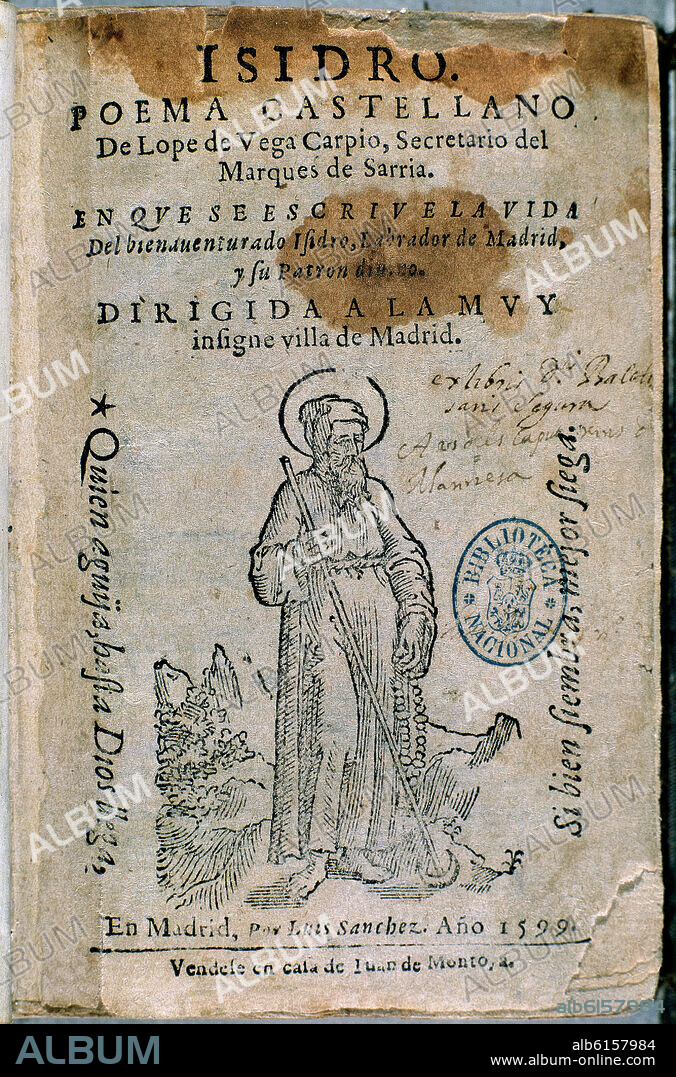 ISIDRO.
POEMA CASTELLANO
De Lope de Vega Carpio, Secretario del
Marques de Sarria.
EN QVE SE ESCRIVE LA VIDA
Del bienauenturado Iſidro, Labrador de Madrid,
y ſu Patron diuino.
DIRIGIDA A LA MVY
inſigne villa de Madrid.
ex libris
Segura
Manresa
Quien aguija, haſta Dios llega,
Si bien ſiembra, mejor ſiega.
BIBLIOTECA
NACIONAL
En Madrid, Por Luis Sanchez. Año 1599.
Vendeſe en caſa de Iuan de Montoya.
ALBUM
alb6157984
ALBUM
alb6157984
www.album-online.com